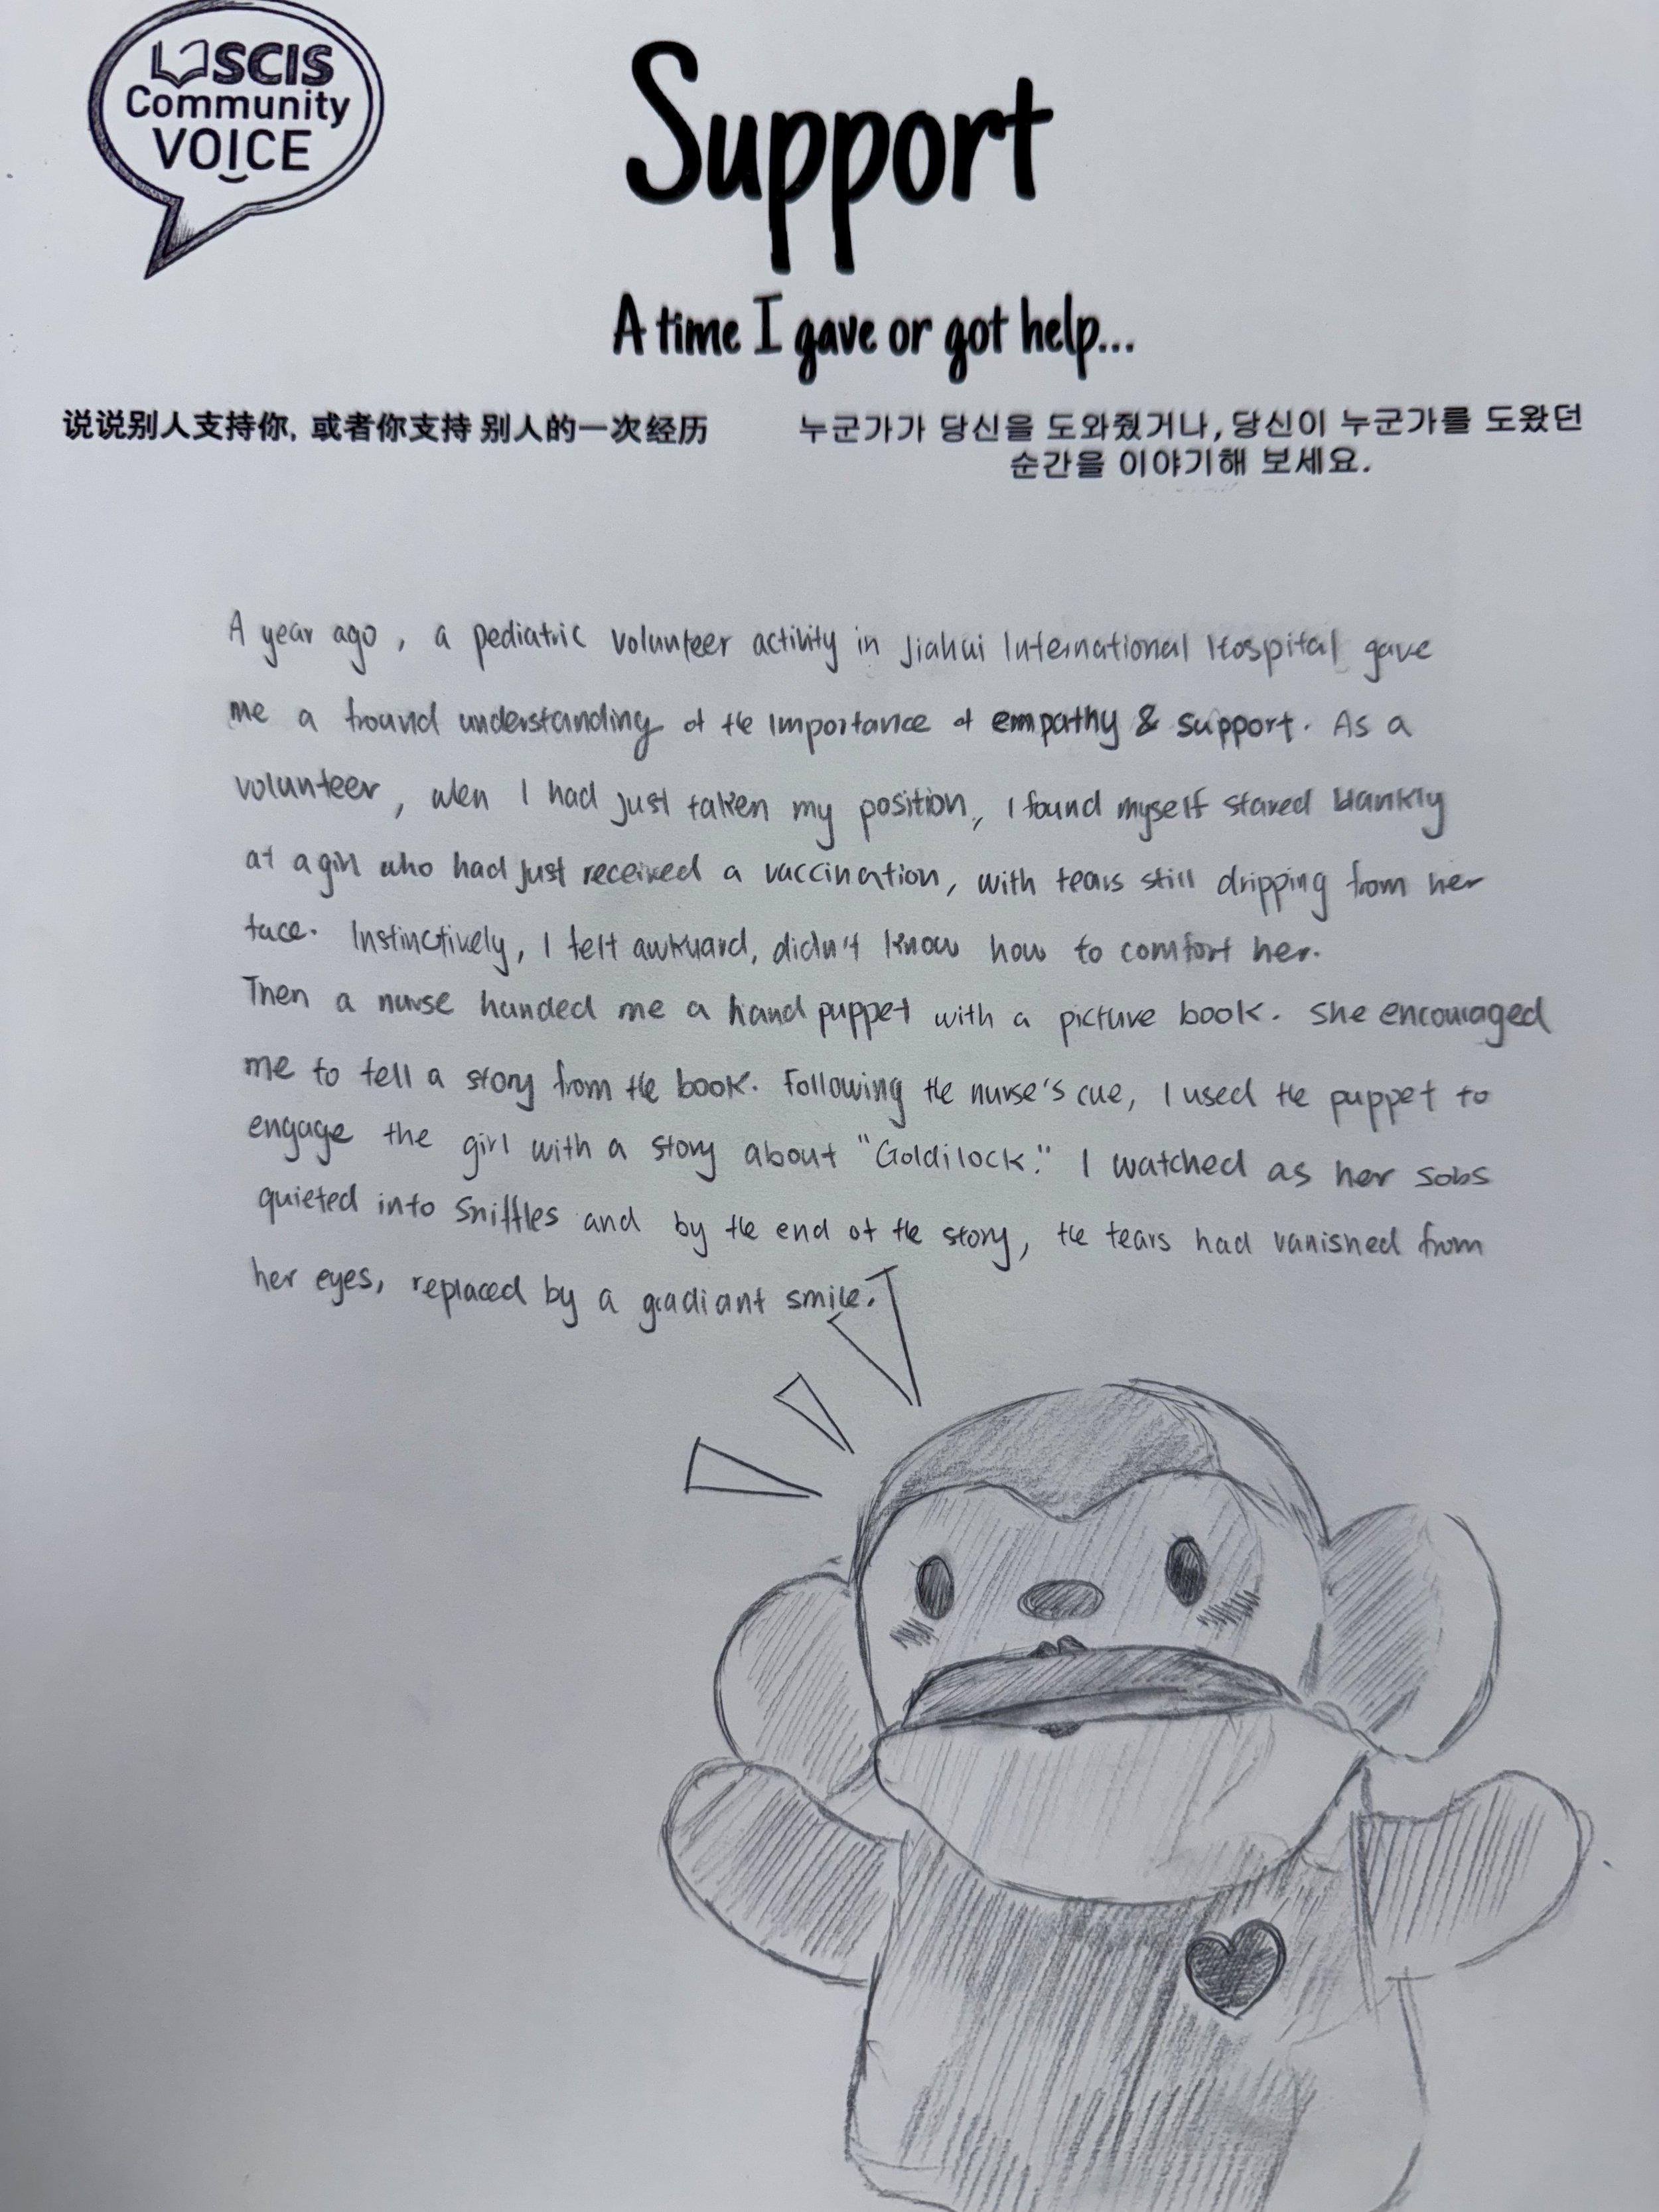 SCIS
Community
VOICE
Support
A time I gave or got help...
说说别人支持你, 或者你支持 别人的一次经历
누군가가 당신을 도와줬거나, 당신이 누군가를 도왔던
순간을 이야기해 보세요.
A year ago, a pediatric volunteer activity in Jiahui International Hospital gave
me a fround understanding of the importance of empathy & support. As a
volunteer, when I had just taken my position, I found myself stared blankly
at a girl who had just received a vaccination, with tears still dripping from her
face. Instinctively, I felt awkward, didn't know how to comfort her.
Then a nurse handed me a hand puppet with a picture book. She encouraged
me to tell a story from the book. Following the nurse's cue, I used the puppet to
engage the girl with a story about "Goldilock." I watched as her sobs
quieted into sniffles and by the end of the story, the tears had vanished from
her eyes, replaced by a gradiant smile.